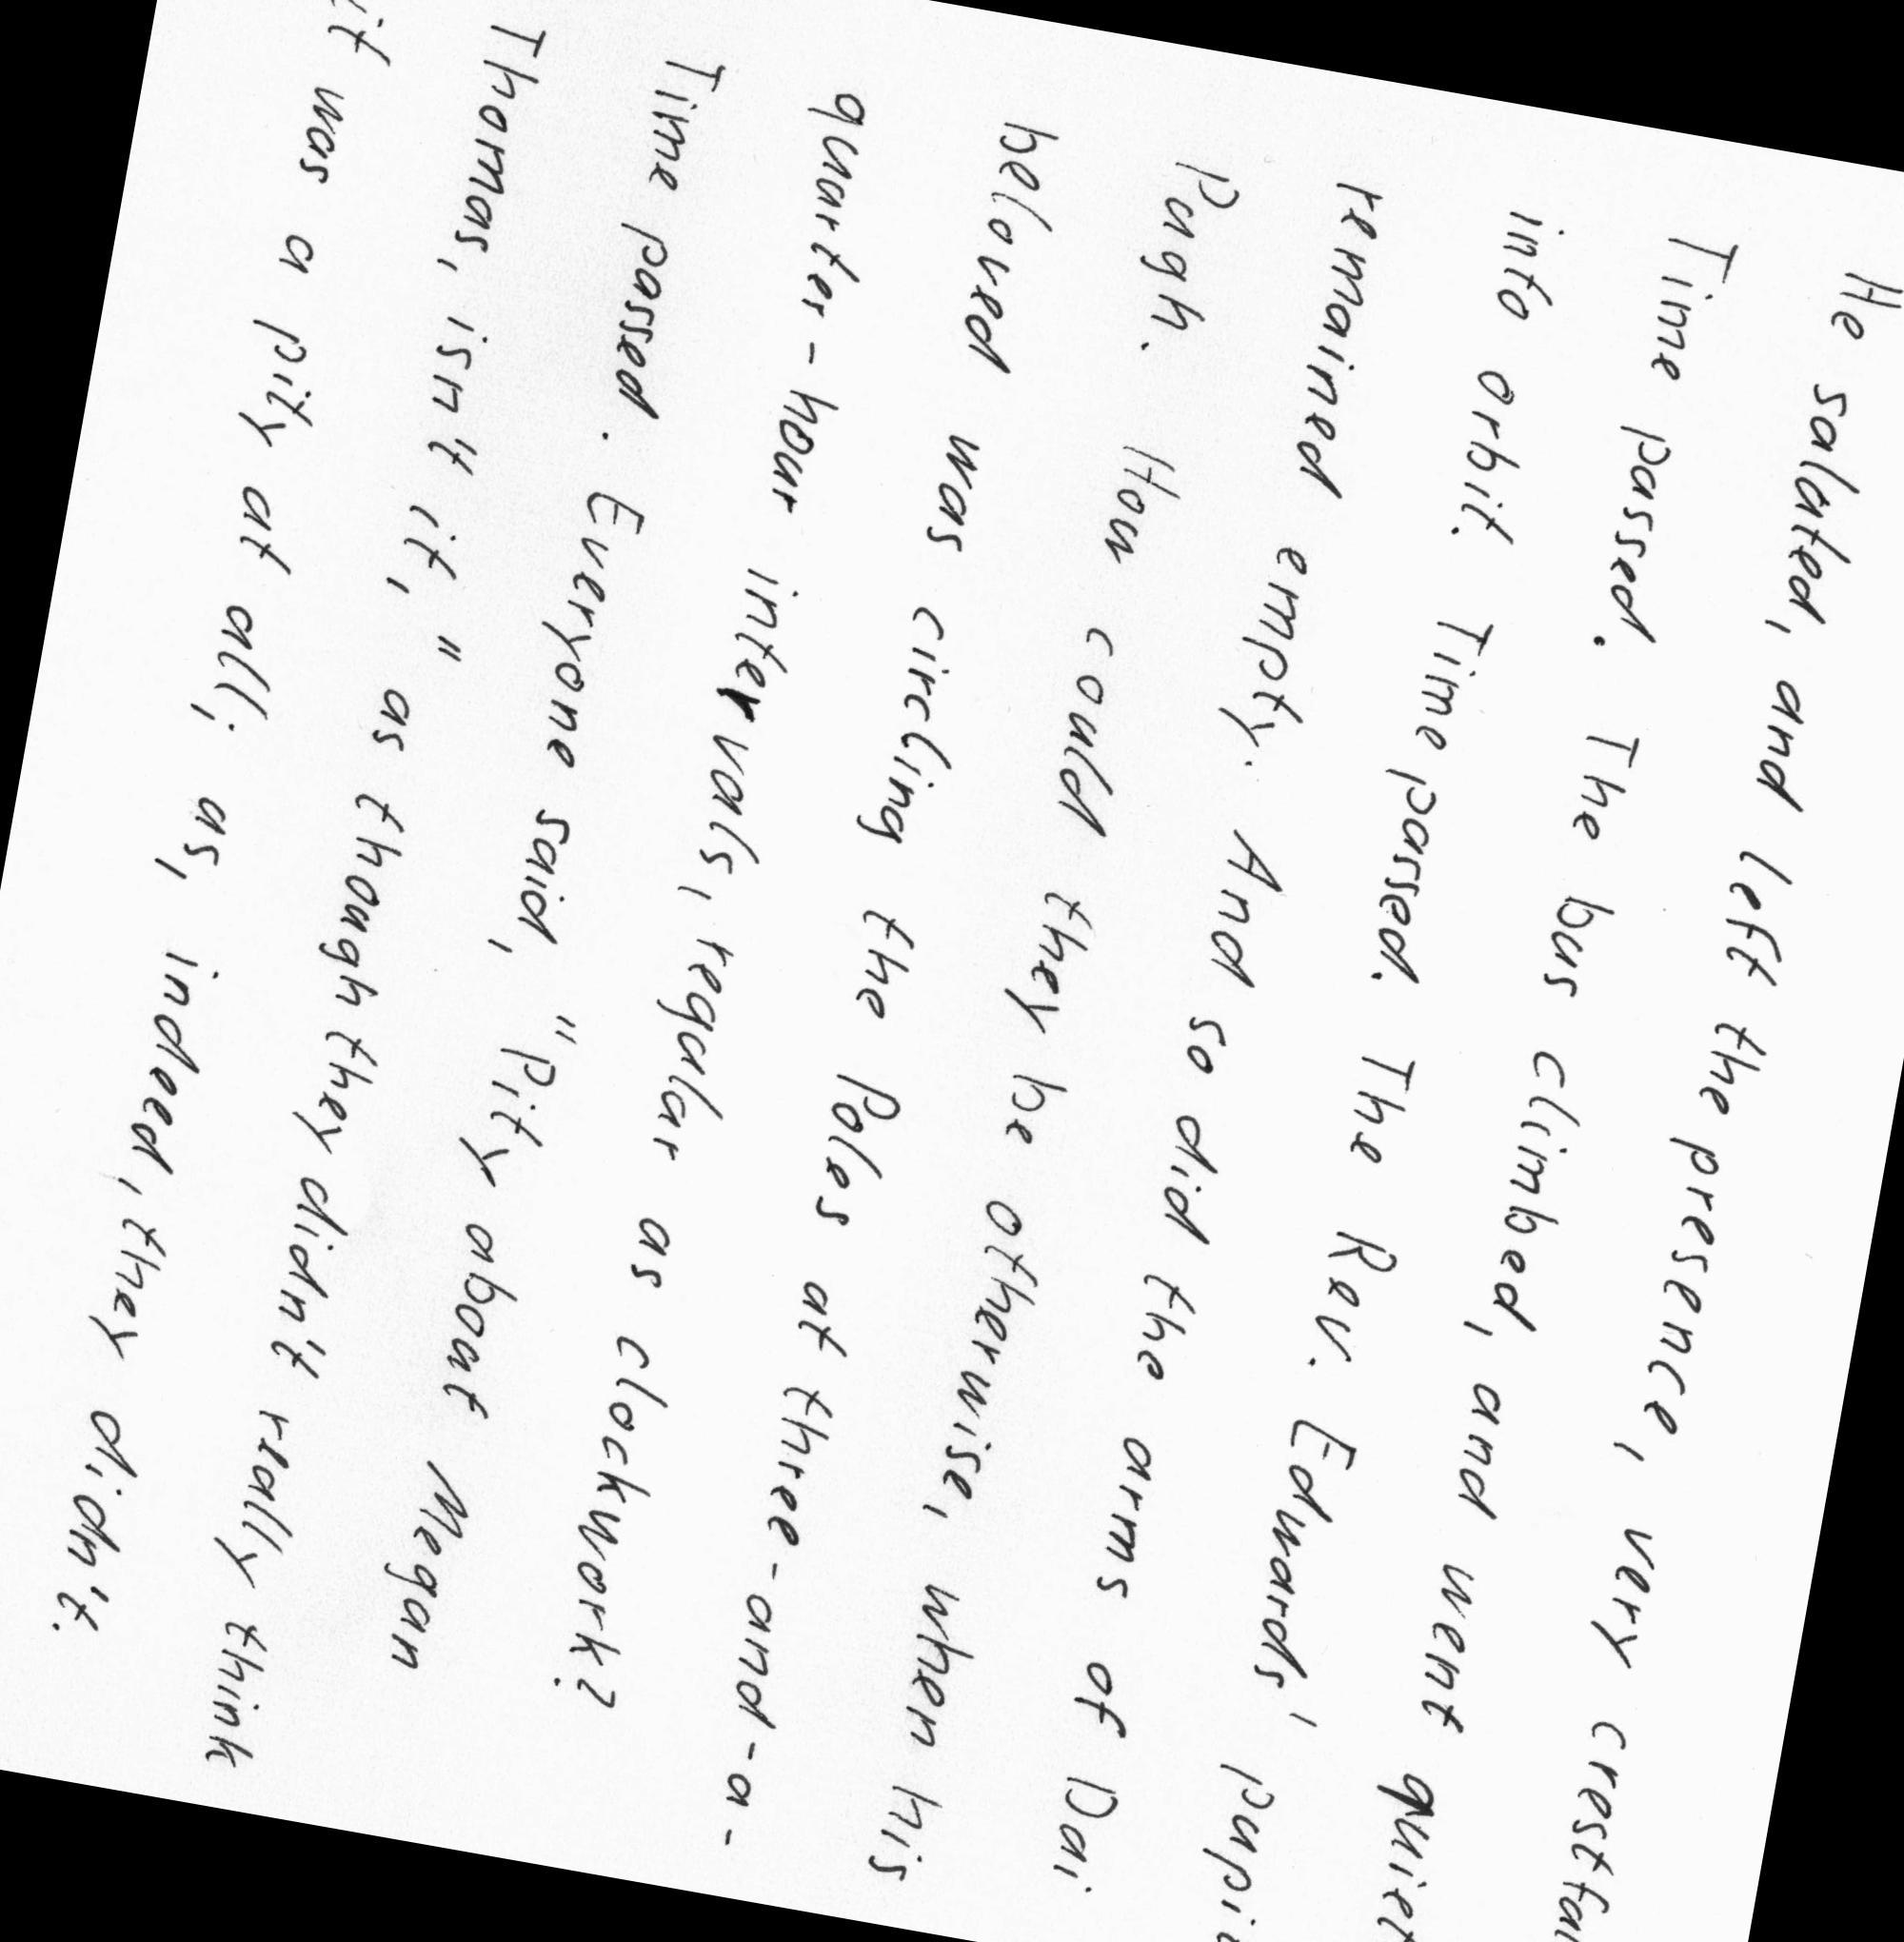 He saluted, and left the presence, very
Time passed. The bus climbed, and went
into orbit. Time passed. The Rev. Edwards'
remained empty. And so did the arms of Dai
Pugh. How could they be otherwise, when his
beloved was circling the Poles at three-and-a-
quarter-hour intervals, regular as clockwork?
Time passed. Everyone said, "Pity about Megan
Thomas, isn't it," as though they didn't really think
it was a pity at all; as, indeed, they didn't.